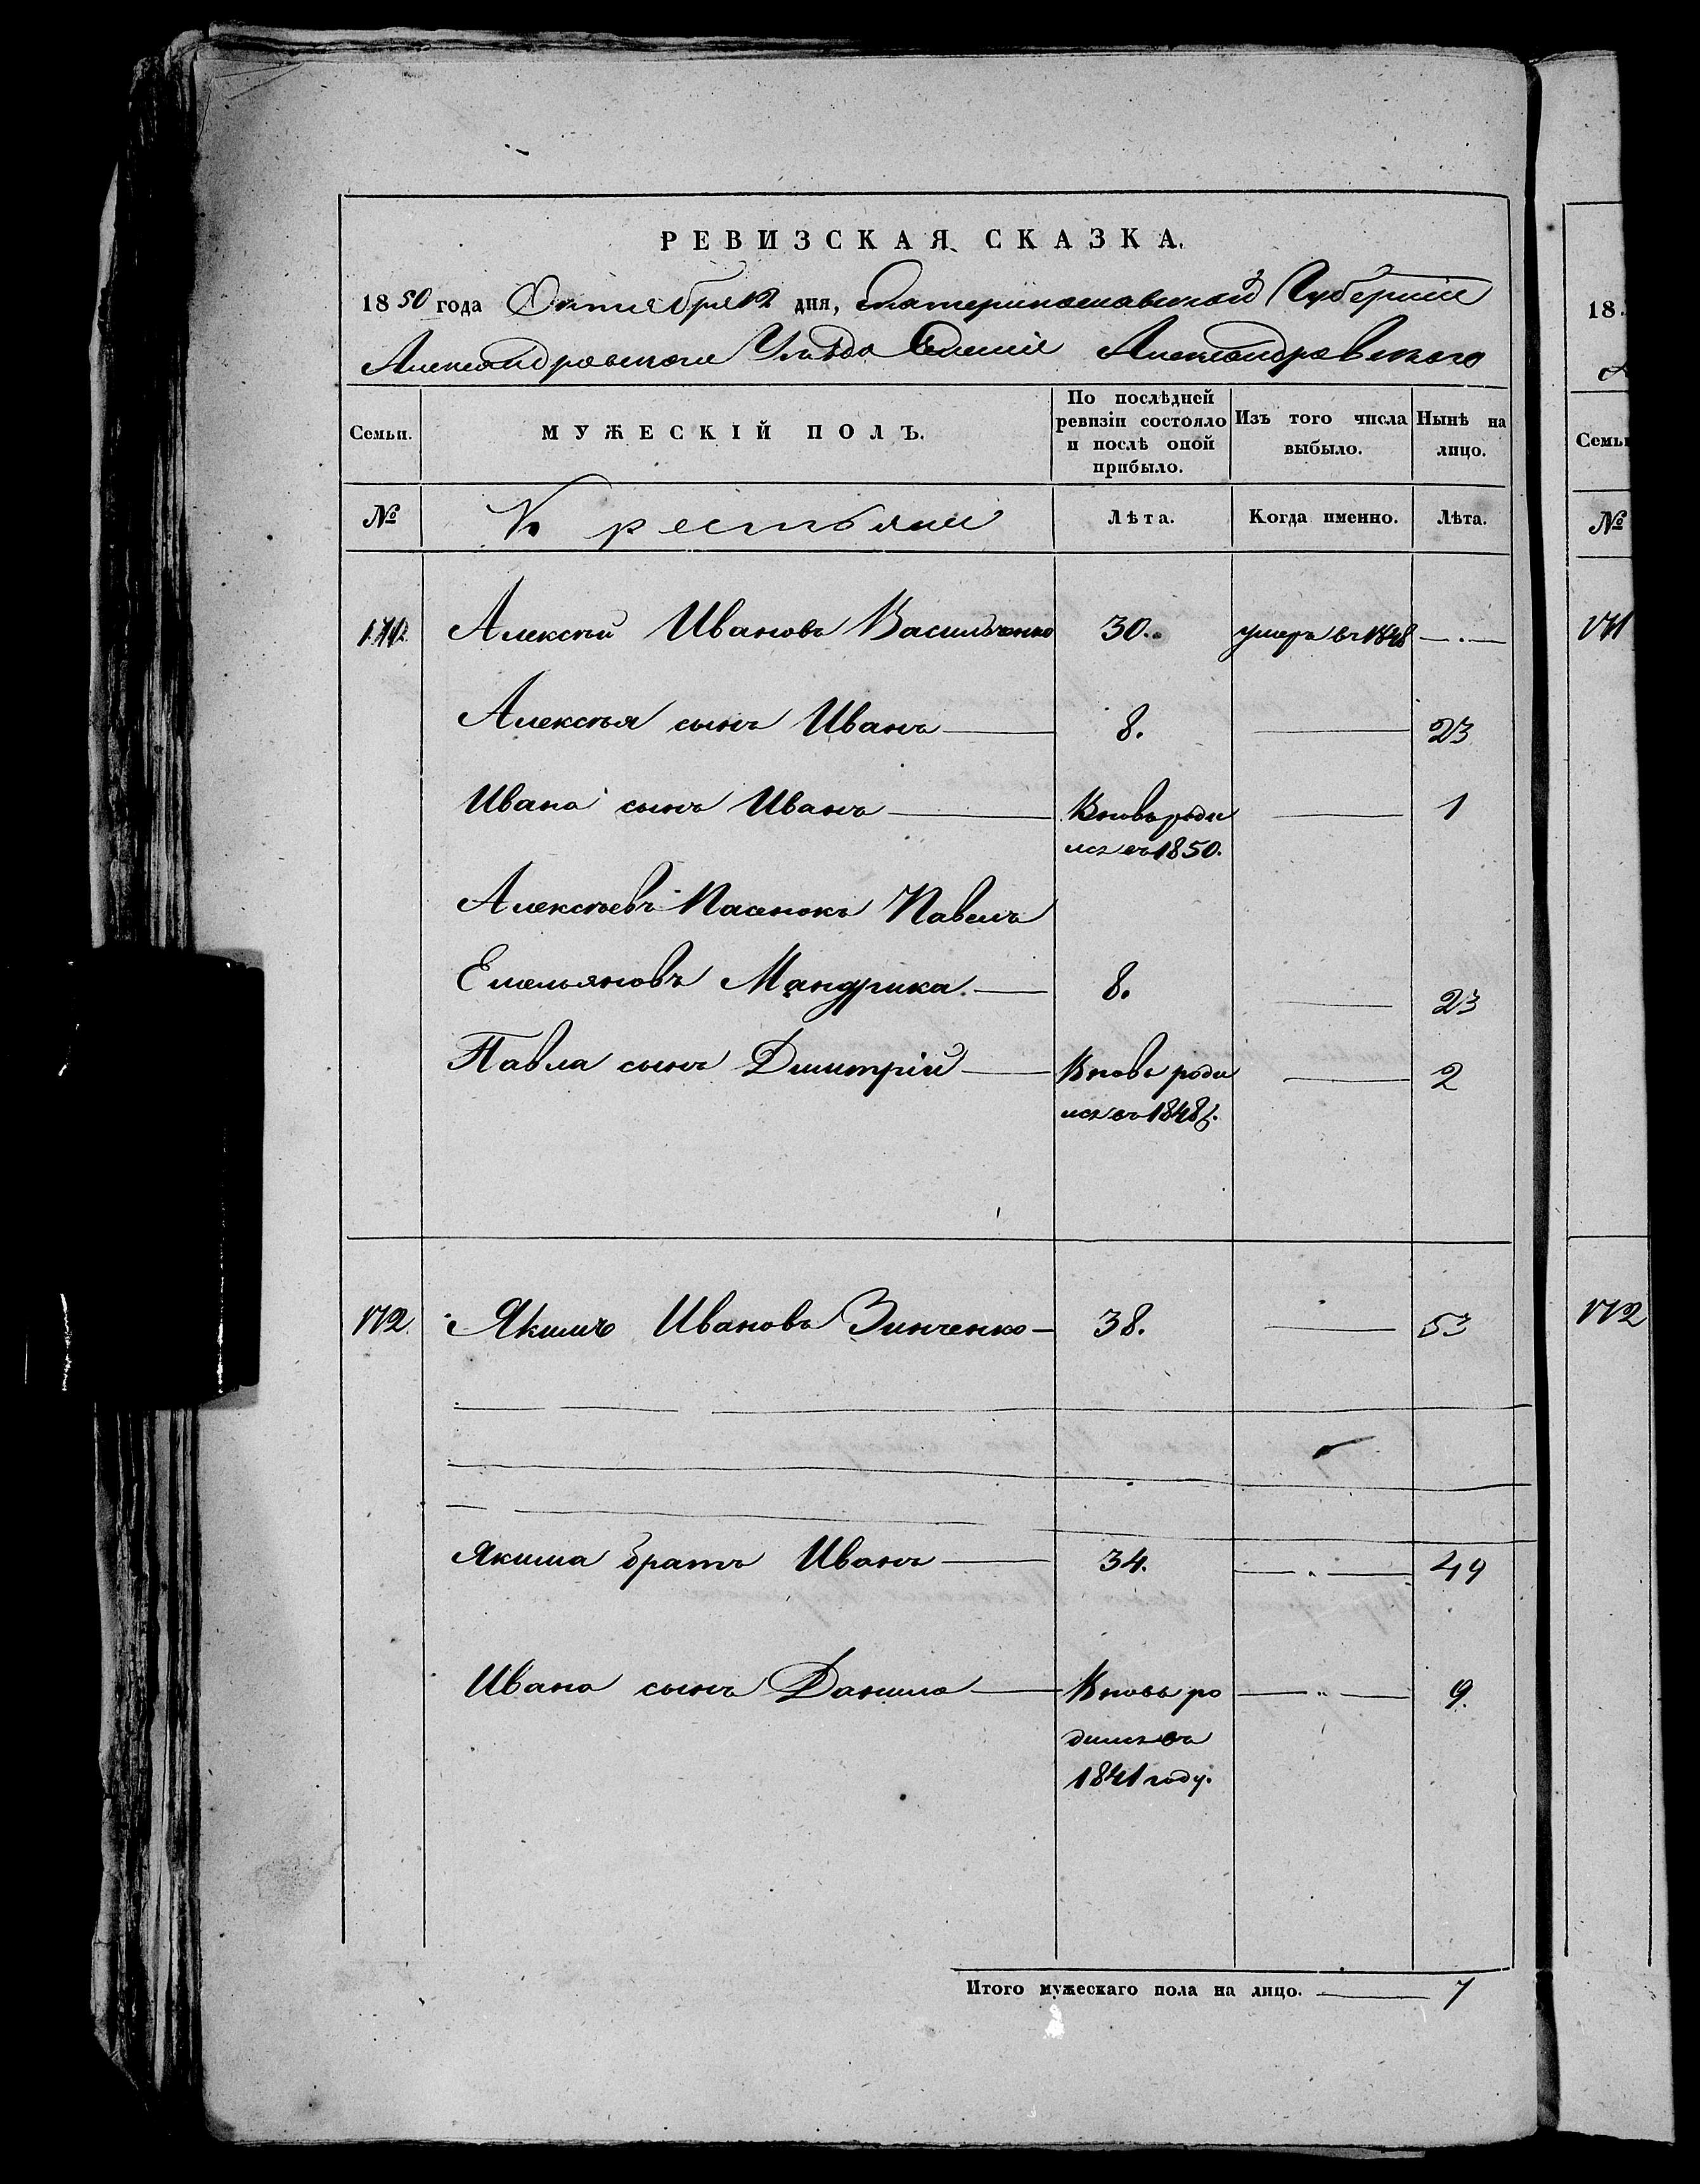 РЕВИЗСКАЯ СКАЗКА.
1850 года Октября 12 дня, Екатеринославской Губерніи
Александровскаго Уѣзда Селенія Александровскаго
Семьи.
МУЖЕСКІЙ ПОЛЪ.
По послѣдней
ревизіи состояло
и послѣ оной
прибыло.
Изъ того числа
выбыло.
Нынѣ на
лицо.
№
Крестьяне
Лѣта.
Когда именно.
Лѣта.
Алексѣй Ивановъ Васильченко 30. умеръ въ 1848 —.—
Алексѣя сынъ Иванъ — 8. — 23
Ивана сынъ Иванъ — Вновь роди — 1
лся въ 1850.
Алексѣевъ Пасынокъ Павелъ
Емельяновъ Мандрика. — 8. — 23
Павла сынъ Димитрій — Вновь роди — 2
лся въ 1848 г.
172. Якимъ Ивановъ Зинченко — 38. — 53
Якима братъ Иванъ — 34. —„— 49
Ивана сынъ Данило — Вновь ро —„— 9.
дился въ
1841 году.
Итого мужескаго пола на лицо. — 7
18
Семьи
№
171
172